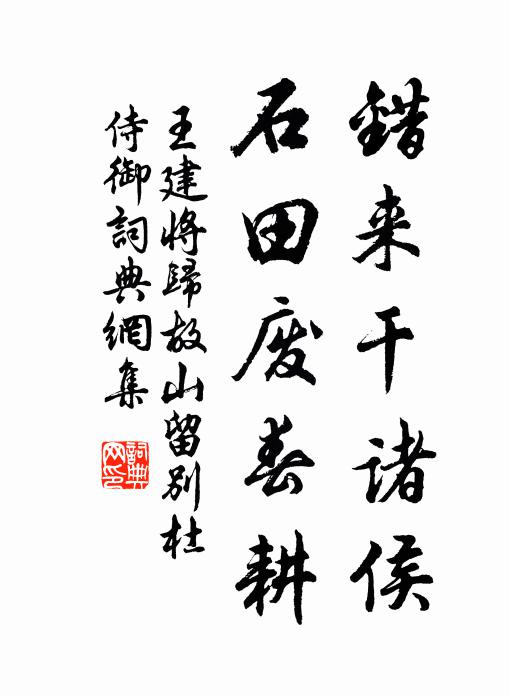 錯来干諸侯
石田廢春耕
王建將歸故山留别杜
侍御詞典網集
詞典網印